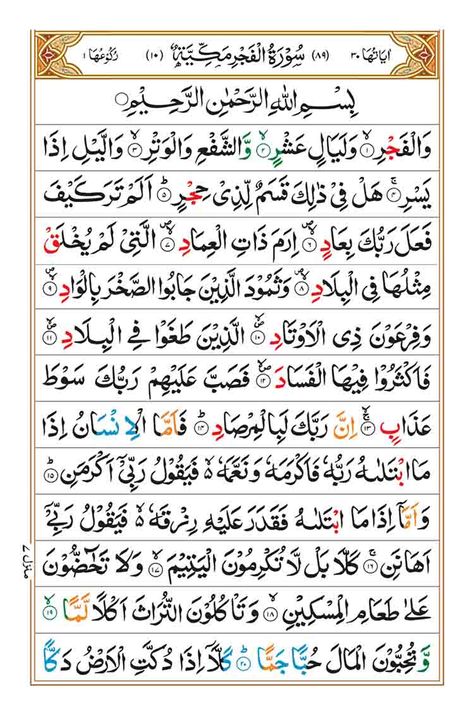 اٰیَاتُهَا ۳۰ (۸۹) سُوْرَةُ الْفَجْرِ مَكِّیَّةٌ (۱۰) رُكُوْعُهَا ۱
بِسْمِ اللّٰهِ الرَّحْمٰنِ الرَّحِیْمِ
وَالْفَجْرِۙ۝۱ وَلَیَالٍ عَشْرٍۙ۝۲ وَّالشَّفْعِ وَالْوَتْرِۙ۝۳ وَالَّیْلِ اِذَا
یَسْرِۚ۝۴ هَلْ فِیْ ذٰلِكَ قَسَمٌ لِّذِیْ حِجْرٍؕ۝۵ اَلَمْ تَرَ كَیْفَ
فَعَلَ رَبُّكَ بِعَادٍ۝۶ اِرَمَ ذَاتِ الْعِمَادِ۝۷ الَّتِیْ لَمْ یُخْلَقْ
مِثْلُهَا فِی الْبِلَادِ۝۸ وَثَمُوْدَ الَّذِیْنَ جَابُوا الصَّخْرَ بِالْوَادِ۝۹
وَفِرْعَوْنَ ذِی الْاَوْتَادِ۝۱۰ الَّذِیْنَ طَغَوْا فِی الْبِلَادِ۝۱۱
فَاَكْثَرُوْا فِیْهَا الْفَسَادَ۝۱۲ فَصَبَّ عَلَیْهِمْ رَبُّكَ سَوْطَ
عَذَابٍ۝۱۳ اِنَّ رَبَّكَ لَبِالْمِرْصَادِؕ۝۱۴ فَاَمَّا الْاِنْسَانُ اِذَا
مَا ابْتَلٰىهُ رَبُّهٗ فَاَكْرَمَهٗ وَنَعَّمَهٗ ۙ۬ فَیَقُوْلُ رَبِّیْۤ اَكْرَمَنِؕ۝۱۵
وَاَمَّاۤ اِذَا مَا ابْتَلٰىهُ فَقَدَرَ عَلَیْهِ رِزْقَهٗ ۙ۬ فَیَقُوْلُ رَبِّیْۤ
اَهَانَنِۚ۝۱۶ كَلَّا بَلْ لَّا تُكْرِمُوْنَ الْیَتِیْمَۙ۝۱۷ وَلَا تَحٰٓضُّوْنَ
عَلٰى طَعَامِ الْمِسْكِیْنِۙ۝۱۸ وَتَاْكُلُوْنَ التُّرَاثَ اَكْلًا لَّمًّاۙ۝۱۹
وَّتُحِبُّوْنَ الْمَالَ حُبًّا جَمًّاؕ۝۲۰ كَلَّاۤ اِذَا دُكَّتِ الْاَرْضُ دَكًّا